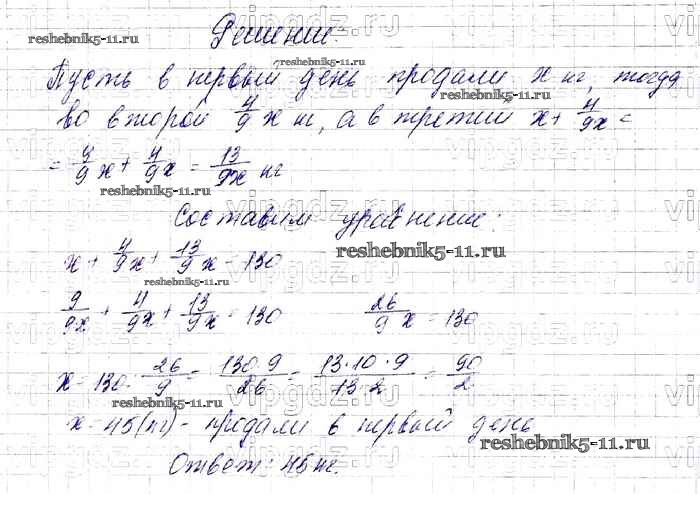 Решение:
Пусть в первый день продали x кг, тогда
во второй 4/9 x кг, а в третий x + 4/9 x =
= 9/9 x + 4/9 x = 13/9 x кг
Составим уравнение:
x + 4/9 x + 13/9 x = 130
9/9 x + 4/9 x + 13/9 x = 130 26/9 x = 130
x = 130 : 26/9 = 130·9/26 = 13·10·9/13·2 = 90/2
x = 45 (кг) - продали в первый день
Ответ: 45 кг.
reshebnik5-11.ru
reshebnik5-11.ru
reshebnik5-11.ru
reshebnik5-11.ru
reshebnik5-11.ru
reshebnik5-11.ru
reshebnik5-11.ru
reshebnik5-11.ru
vipgdz.ru